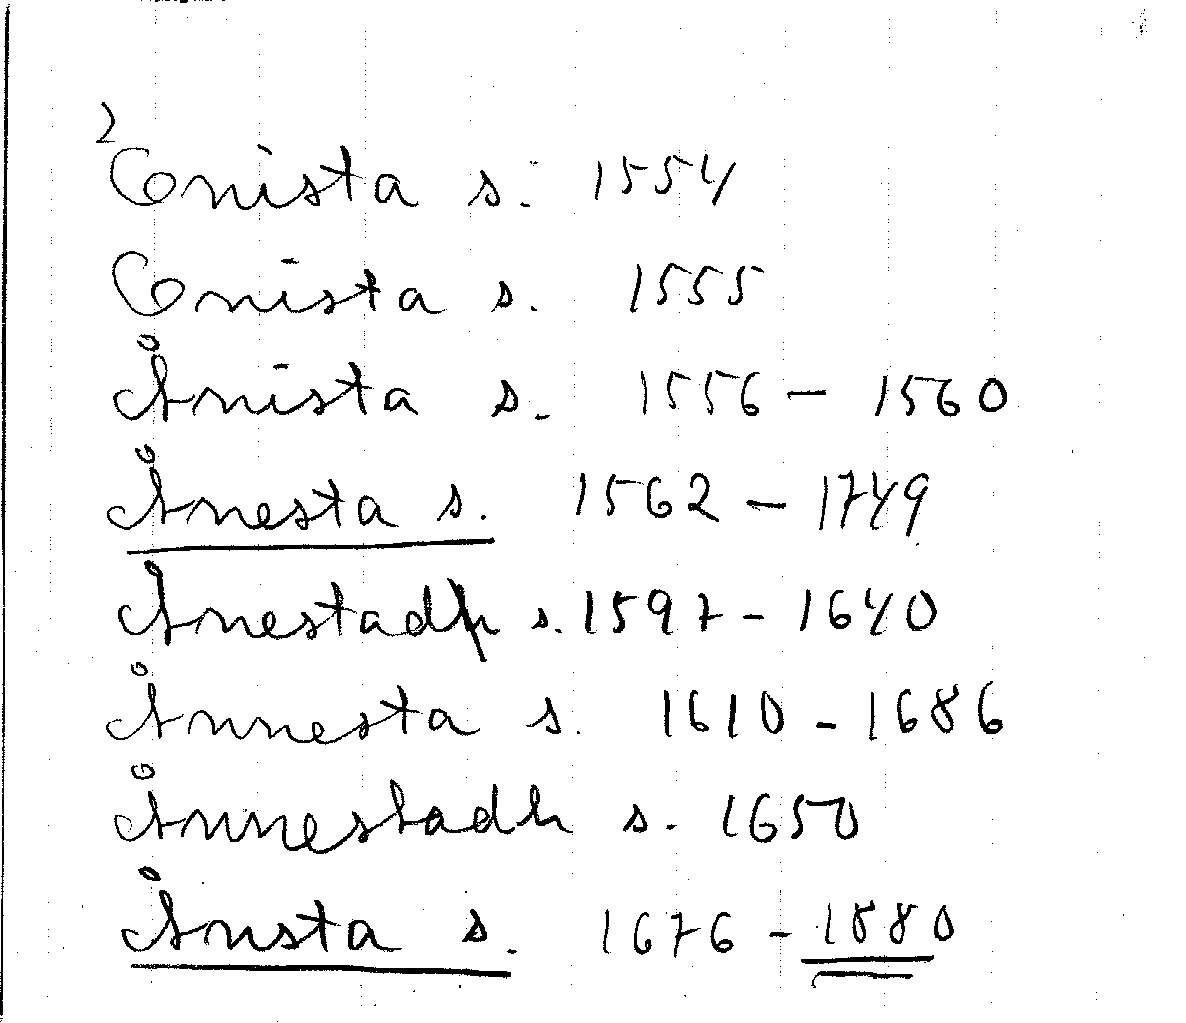 2
Onista s. 1554
Onista s. 1555
Ånista s. 1556 – 1560
Ånesta s. 1562 – 1749
Ånestadh s. 1597 – 1640
Ånnesta s. 1610 – 1686
Ånnestadh s. 1650
Ånsta s. 1676 – 1880